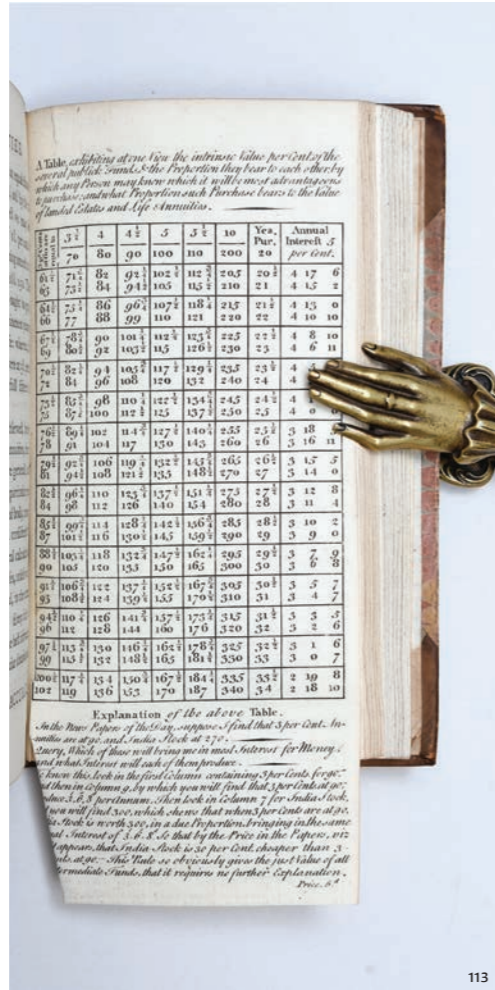 A Table, exhibiting at one View the intrinsic Value per Cent. of the
several publick Funds, & the Proportion they bear to each other, by
which any Person may know which it will be most advantageous
to purchase; and what Proportion such Purchase bears to the Value
of landed Estates and Life Annuities.
3½ 4 4½ 5 5½ 10 Yea. Annual
Pur. Interest 5
equal to 70 80 90 100 110 200 20 per Cent.
61½ 71¾ 82 92¼ 102½ 112¾ 205 20½ 4 17 6
63 73½ 84 94½ 105 115½ 210 21 4 15 2
64½ 75¼ 86 96¾ 107½ 118¼ 215 21½ 4 13 0
66 77 88 99 110 121 220 22 4 10 10
67½ 78¾ 90 101¼ 112½ 123¾ 225 22½ 4 8 10
69 80½ 92 103½ 115 126½ 230 23 4 6 11
70½ 82¼ 94 105¾ 117½ 129¼ 235 23½ 4
72 84 96 108 120 132 240 24 4
73½ 85¾ 98 110¼ 122½ 134¾ 245 24½ 4
75 87½ 100 112½ 125 137½ 250 25 4 0 0
76½ 89¼ 102 114¾ 127½ 140¼ 255 25½ 3 18 5
78 91 104 117 130 143 260 26 3 16 11
79½ 92¾ 106 119¼ 132½ 145¾ 265 26½ 3 15 5
81 94½ 108 121½ 135 148½ 270 27 3 14 0
82½ 96¼ 110 123¾ 137½ 151¼ 275 27½ 3 12 8
84 98 112 126 140 154 280 28 3 11 4
85½ 99¾ 114 128¼ 142½ 156¾ 285 28½ 3 10 2
87 101½ 116 130½ 145 159½ 290 29 3 9 0
88½ 103¼ 118 132¾ 147½ 162¼ 295 29½ 3 7 9
90 105 120 135 150 165 300 30 3 6 8
91½ 106¾ 122 137¼ 152½ 167¾ 305 30½ 3 5 7
93 108½ 124 139½ 155 170½ 310 31 3 4 7
94½ 110¼ 126 141¾ 157½ 173¼ 315 31½ 3 3 5
96 112 128 144 160 176 320 32 3 2 6
97½ 113¾ 130 146¼ 162½ 178¾ 325 32½ 3 1 6
99 115½ 132 148½ 165 181½ 330 33 3 0 7
100½ 117¼ 134 150¾ 167½ 184¼ 335 33½ 2 19 8
102 119 136 153 170 187 340 34 2 18 10
Explanation of the above Table.
In the News Papers of the Day, suppose I find that 3 per Cent. An-
nuities are at 90, and India Stock at 270.
Query, Which of those will bring me in most Interest for Money,
and what Interest will each of them produce.
know this, look in the first Column containing 3 per Cents. for 90.
and then in Column 9, by which you will find that 3 per Cents. at 90,
3, 6, 8 per Annum. Then look in Column 7 for India Stock,
you will find 300, which shews that when 3 per Cents are at 90,
Stock is worth 300, in a due Proportion, bringing in the same
Interest of 3. 6. 8. So that by the Price in the Papers, viz
appears, that India Stock is 30 per Cent. cheaper than 3
at 90. This Rule so obviously gives the just Value of all
Funds, that it requires no further Explanation.
Price, 6.d
113